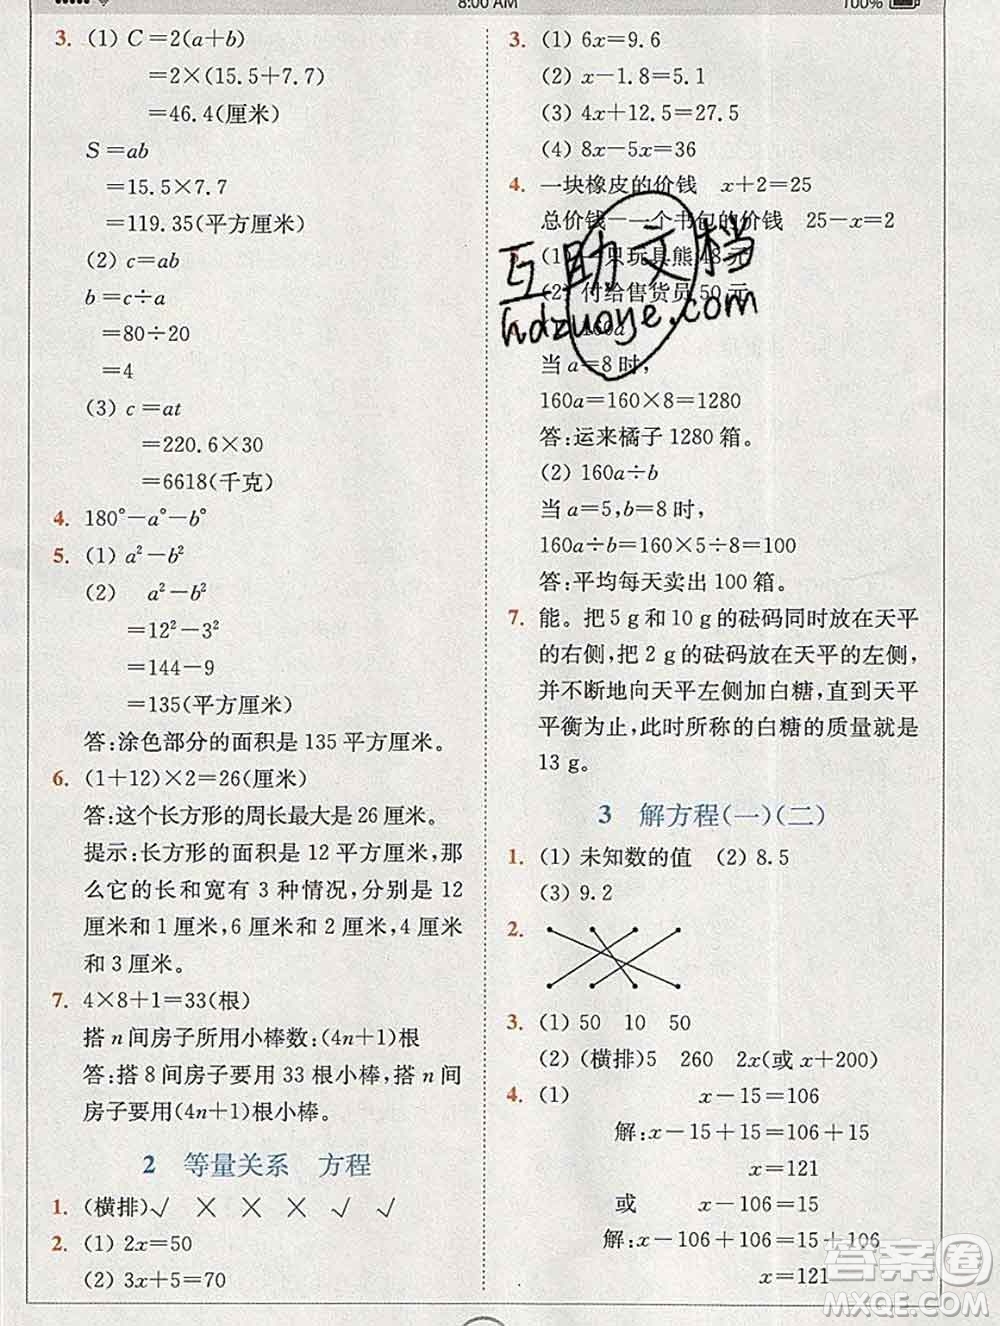 8:00 AM
100%
3. (1) C=2(a+b)
=2×(15.5+7.7)
=46.4(厘米)
S=ab
=15.5×7.7
=119.35(平方厘米)
(2) c=ab
b=c÷a
=80÷20
=4
(3) c=at
=220.6×30
=6618(千克)
4. 180°-a°-b°
5. (1) a²-b²
(2) a²-b²
=12²-3²
=144-9
=135(平方厘米)
答:涂色部分的面积是 135 平方厘米。
6. (1+12)×2=26(厘米)
答:这个长方形的周长最大是 26 厘米。
提示:长方形的面积是 12 平方厘米,那
么它的长和宽有 3 种情况,分别是 12
厘米和 1 厘米,6 厘米和 2 厘米,4 厘米
和 3 厘米。
7. 4×8+1=33(根)
搭 n 间房子所用小棒数:(4n+1)根
答:搭 8 间房子要用 33 根小棒,搭 n 间
房子要用(4n+1)根小棒。
2 等量关系 方程
1. (横排)√ × × × √ √
2. (1) 2x=50
(2) 3x+5=70
3. (1) 6x=9.6
(2) x-1.8=5.1
(3) 4x+12.5=27.5
(4) 8x-5x=36
4. 一块橡皮的价钱 x+2=25
总价钱-一个书包的价钱 25-x=2
(1) 一只玩具熊 48 元
(2) 付给售货员 50 元
160a
当 a=8 时,
160a=160×8=1280
答:运来橘子 1280 箱。
(2) 160a÷b
当 a=5,b=8 时,
160a÷b=160×5÷8=100
答:平均每天卖出 100 箱。
7. 能。把 5 g 和 10 g 的砝码同时放在天平
的右侧,把 2 g 的砝码放在天平的左侧,
并不断地向天平左侧加白糖,直到天平
平衡为止,此时所称的白糖的质量就是
13 g。
3 解方程(一)(二)
1. (1) 未知数的值 (2) 8.5
(3) 9.2
2.
3. (1) 50 10 50
(2) (横排)5 260 2x(或 x+200)
4. (1) x-15=106
解:x-15+15=106+15
x=121
或 x-106=15
解:x-106+106=15+106
x=121
互助文档
hdzuoye.com
答案圈
MXQE.COM